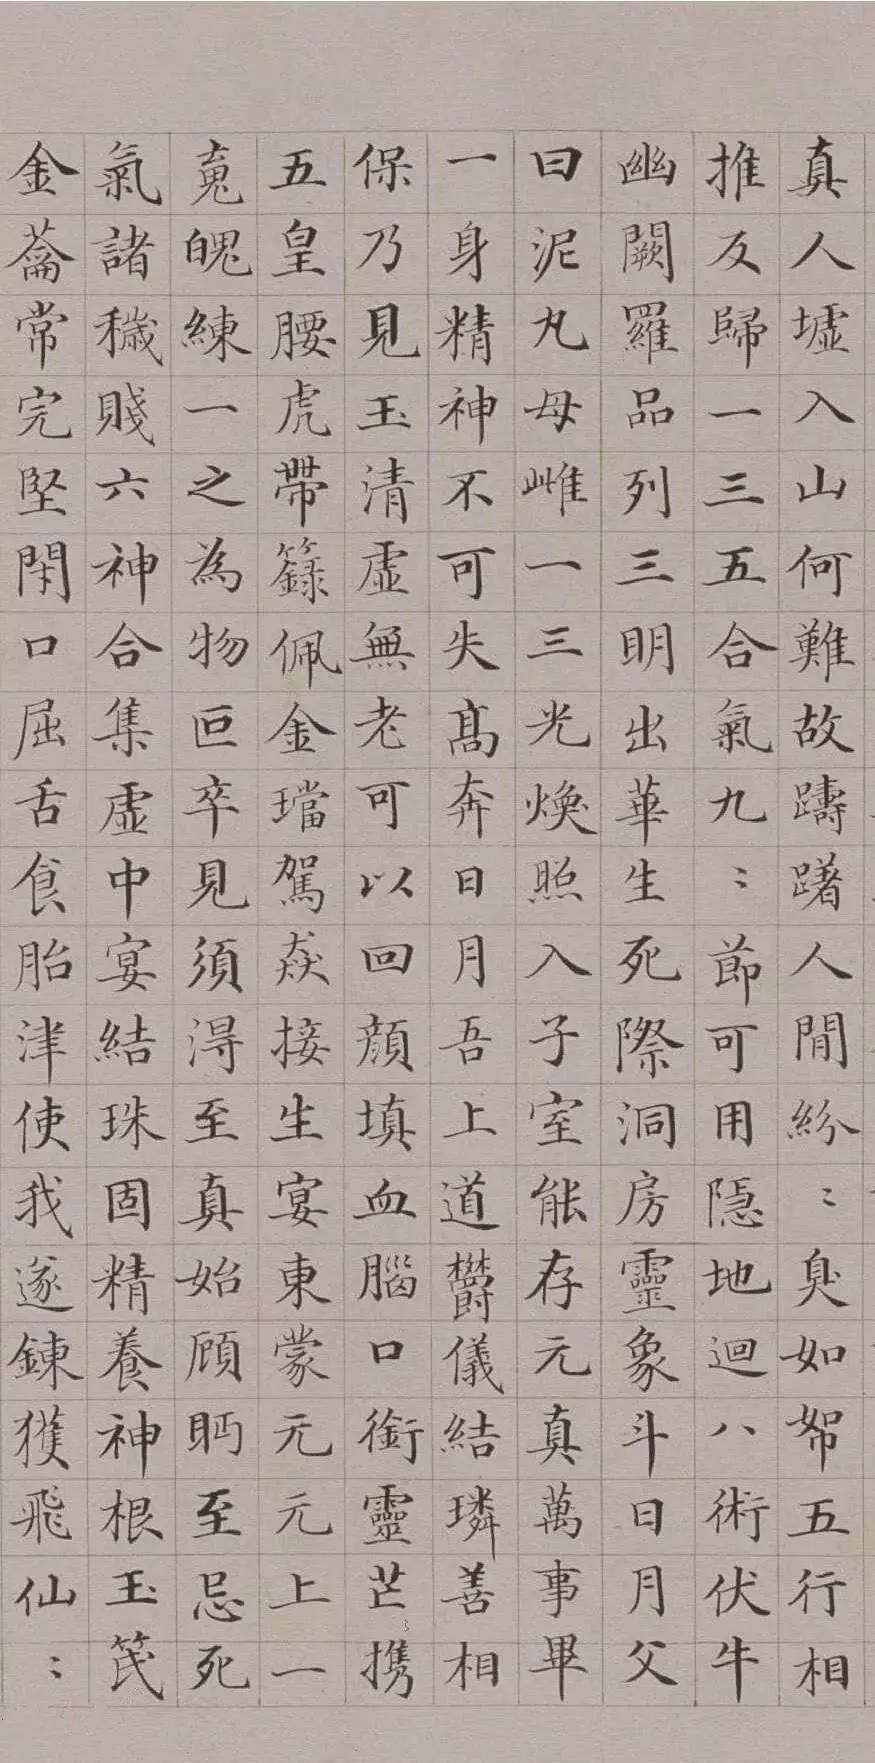 真人墟入山何難故躊躇人閒紛〻臭如帤五行相
推反歸一三五合氣九〻節可用隱地迴八術伏牛
幽闕羅品列三明出華生死際洞房靈象斗日月父
曰泥丸母雌一三光煥照入子室能存元真萬事畢
一身精神不可失高奔日月吾上道欝儀結璘善相
保乃見玉清虛無老可以回顏填血腦口銜靈芒携
五皇腰虎帶籙佩金璫駕焱接生宴東蒙元元上一
魂魄練一之為物叵卒見須得至真始顧眄至忌死
氣諸穢賤六神合集虛中宴結珠固精養神根玉笢
金蘥常完堅閇口屈舌食胎津使我遂鍊獲飛仙〻